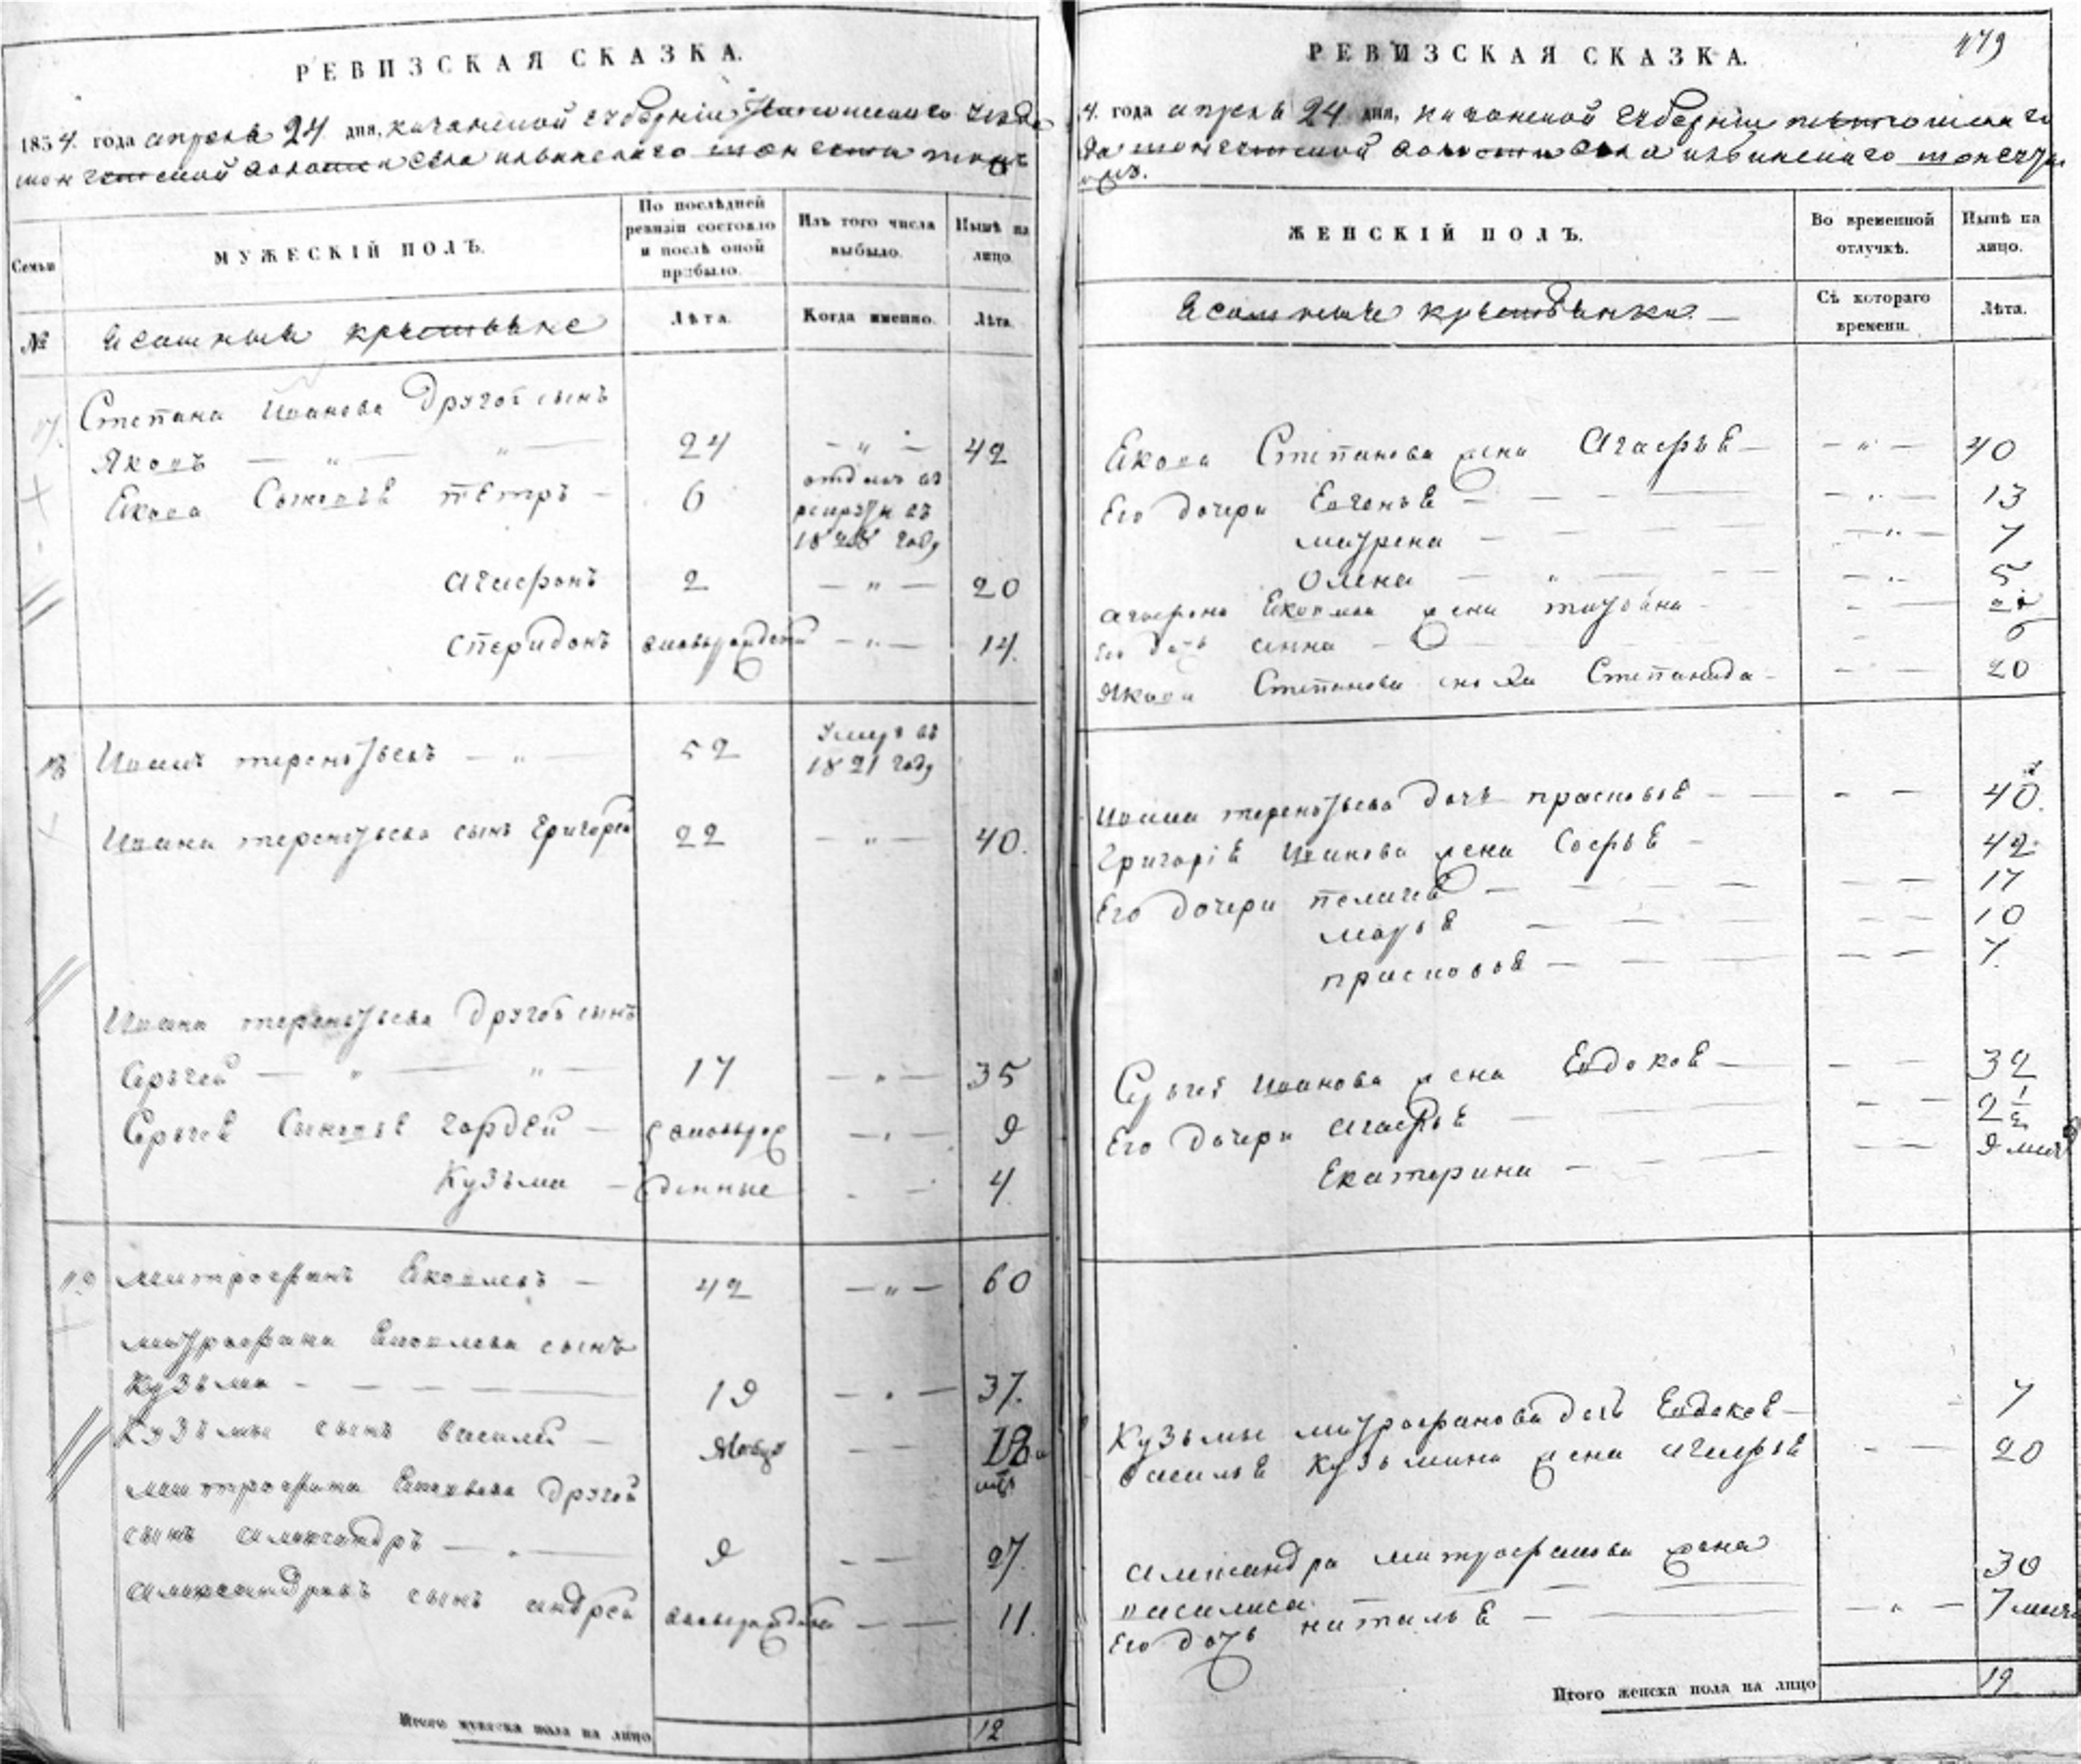 РЕВИЗСКАЯ СКАЗКА.
1834 года апреля 24 дня, казанской губернии
волости села
Семьи
МУЖЕСКІЙ ПОЛЪ.
По послѣдней ревизіи состояло и послѣ оной прибыло.
Изъ того числа выбыло.
Нынѣ на лицо.
№
Ясашныя крестьяне
Лѣта.
Когда именно.
Лѣта.
17. Степана Иванова другой сынъ
Яковъ — " — " — 24 — " — 42
Якова Сыновья петръ — 6 отданъ въ
рекруты въ
1828 году
агафонъ 2 — " — 20
спиридонъ вновьрожденъ — " — 14.
18 Иванъ терентьевъ — " — 52 Умеръ въ
1821 году
Ивана терентьева сынъ Григорей 22 — " — 40.
Ивана терентьева другой сынъ
Сергей — " — " — 17 — " — 35
Сергея Сыновья гордей — вновьрож — " — 9
Кузьма — денные - — 4.
19 митрофанъ Яковлевъ — 42 — " — 60
митрофана Яковлева сынъ
Кузьма - — — — — 19 — " — 37.
Кузьмы сынъ василей — — — 18
митрофана Яковлева другой
сынъ александръ — . — 9 - — 27.
александровъ сынъ андрей вновьрожденъ — — 11.
Итого мужеска пола на лицо 12
РЕВИЗСКАЯ СКАЗКА.
479
4. года апреля 24 дня, казанской губернии
волости села
ЖЕНСКІЙ ПОЛЪ.
Во временной отлучкѣ.
Нынѣ на лицо.
Ясашныя крестьянки. —
Съ котораго времени.
Лѣта.
Якова Степанова жена Агафья — — " — 40
Его дочери Евгенья — - — — — " — 13
маурена — - — — — " — 7
Олена — " — — — " — 5
агафона Яковлева жена татьяна - - —
Его дочь анна — — - — 6
Якова Степанова сноха Степанида - - — 20
Ивана терентьева дочь прасковья — — - — 40.
Григорья Иванова жена Софья — 42
Его дочери пелагея — — — — — 17
марья — — — — — 10
прасковья — — — — — 7.
Сергея Иванова жена Евдокея — - — 32
Его дочери агафья — — - — 2 1/2
Екатерина — - — — — 9 мес
Кузьмы митрофанова дочь Евдокея — - 7
василья Кузьмина жена агафья - — 20
александра митрофанова жена
василиса. — — 30
Его дочь наталья — — — " — 7 меся
Итого женска пола на лицо 19